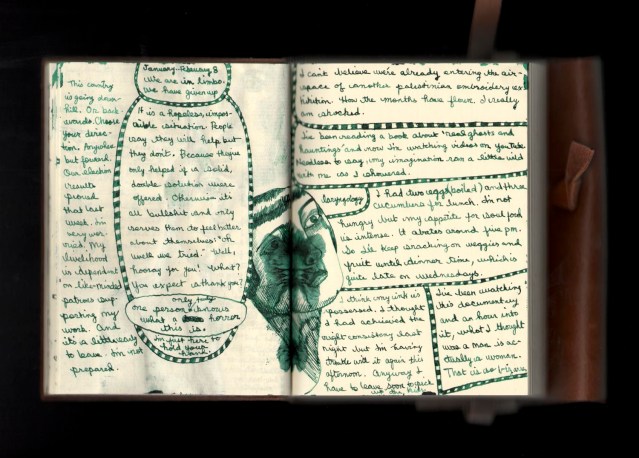 This country
is going down-
hill. Or back-
wards. Choose
your direc-
tion. Anywhere
but forward.
Our election
results
proved
that last
week. I'm
very wor-
ried. My
livelihood
is dependent
on like-minded
patrons sup-
porting my
work. And
it's a little early
to leave. I'm not
prepared.
January-February 8
We are in limbo.
We have given up
It is a hopeless, impos-
sible situation. People
say they will help but
they don't. Because
only helped if a solid,
doable solution were
offered. Otherwise it's
all bullshit and only
serves them to feel better
about themselves. "Oh
well we tried." Well,
hooray for you! What?
You expect a thank you?
only
one person knows
what a horror
this is.
I'm just here to
hold your
hand.
I can't believe we're already entering the air-
space of another palestrina embroidery ex-
hibition. How the months have flown. I really
am shocked.
I've been reading a book about "real ghosts and
hauntings" and now I'm watching videos on YouTube.
Needless to say, my imagination ran a little wild
with me as I showered.
I had two eggs (boiled) and three
cucumbers for lunch. I'm not
hungry but my appetite for soul food
is intense. It abates around five pm.
So I'll keep snacking on veggies and
fruit until dinner time, which is
quite late on wednesdays.
I think my ink is
possessed. I thought
I had achieved the
right consistency last
night but I'm having
trouble with it again this
afternoon. Anyway I
have to leave soon to pick
I've been watching
this documentary
and an hour into
it, what I thought
was a man is ac-
tually a woman.
That is so bizarre